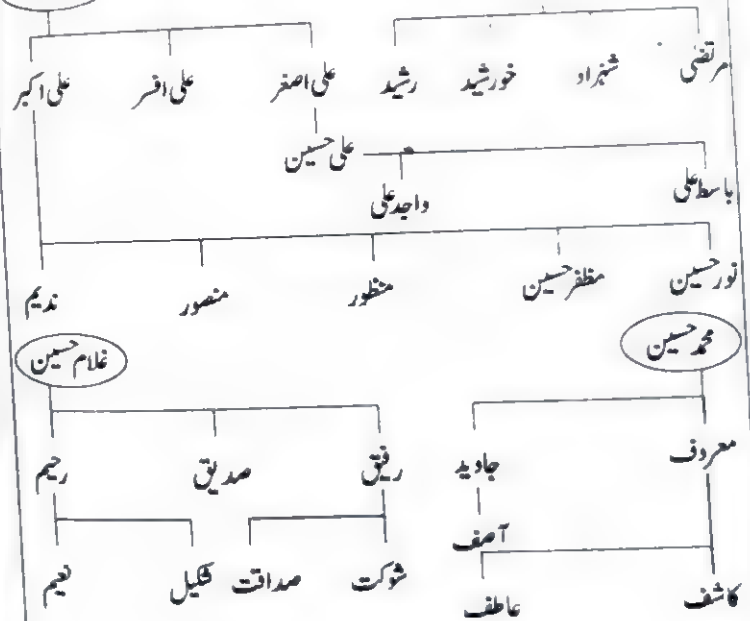 مرتضیٰ شہزاد خورشید رشید علی اصغر علی افسر علی اکبر
علی حسین
باسط علی واجد علی
نور حسین مظفر حسین منظور منصور ندیم
محمد حسین غلام حسین
معروف جاوید رفیق صدیق رحیم
آصف
کاشف عاطف شوکت صداقت شکیل نعیم